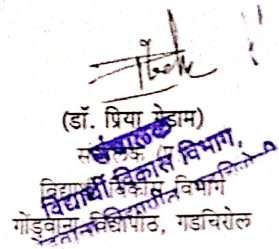 (डॉ. प्रिया गेडाम)
संचालक
विद्यार्थी विकास विभाग
गोंडवाना विद्यापीठ, गडचिरोल
संचालक
विद्यार्थी विकास विभाग,